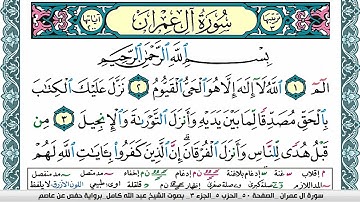 سُورَةُ آلِ عِمْرَانَ
بِسْمِ اللَّهِ الرَّحْمَٰنِ الرَّحِيمِ
الٓمٓ ١ اللَّهُ لَا إِلَٰهَ إِلَّا هُوَ الْحَيُّ الْقَيُّومُ ٢ نَزَّلَ عَلَيْكَ الْكِتَابَ
بِالْحَقِّ مُصَدِّقًا لِمَا بَيْنَ يَدَيْهِ وَأَنزَلَ التَّوْرَاةَ وَالْإِنجِيلَ ٣ مِن
قَبْلُ هُدًى لِلنَّاسِ وَأَنزَلَ الْفُرْقَانَ إِنَّ الَّذِينَ كَفَرُوا بِآيَاتِ اللَّهِ لَهُمْ
سورة آل عمران - الصفحة ٥٠ - الحزب ٥ - الجزء ٣ - بصوت الشيخ عبد الله كامل - برواية حفص عن عاصم